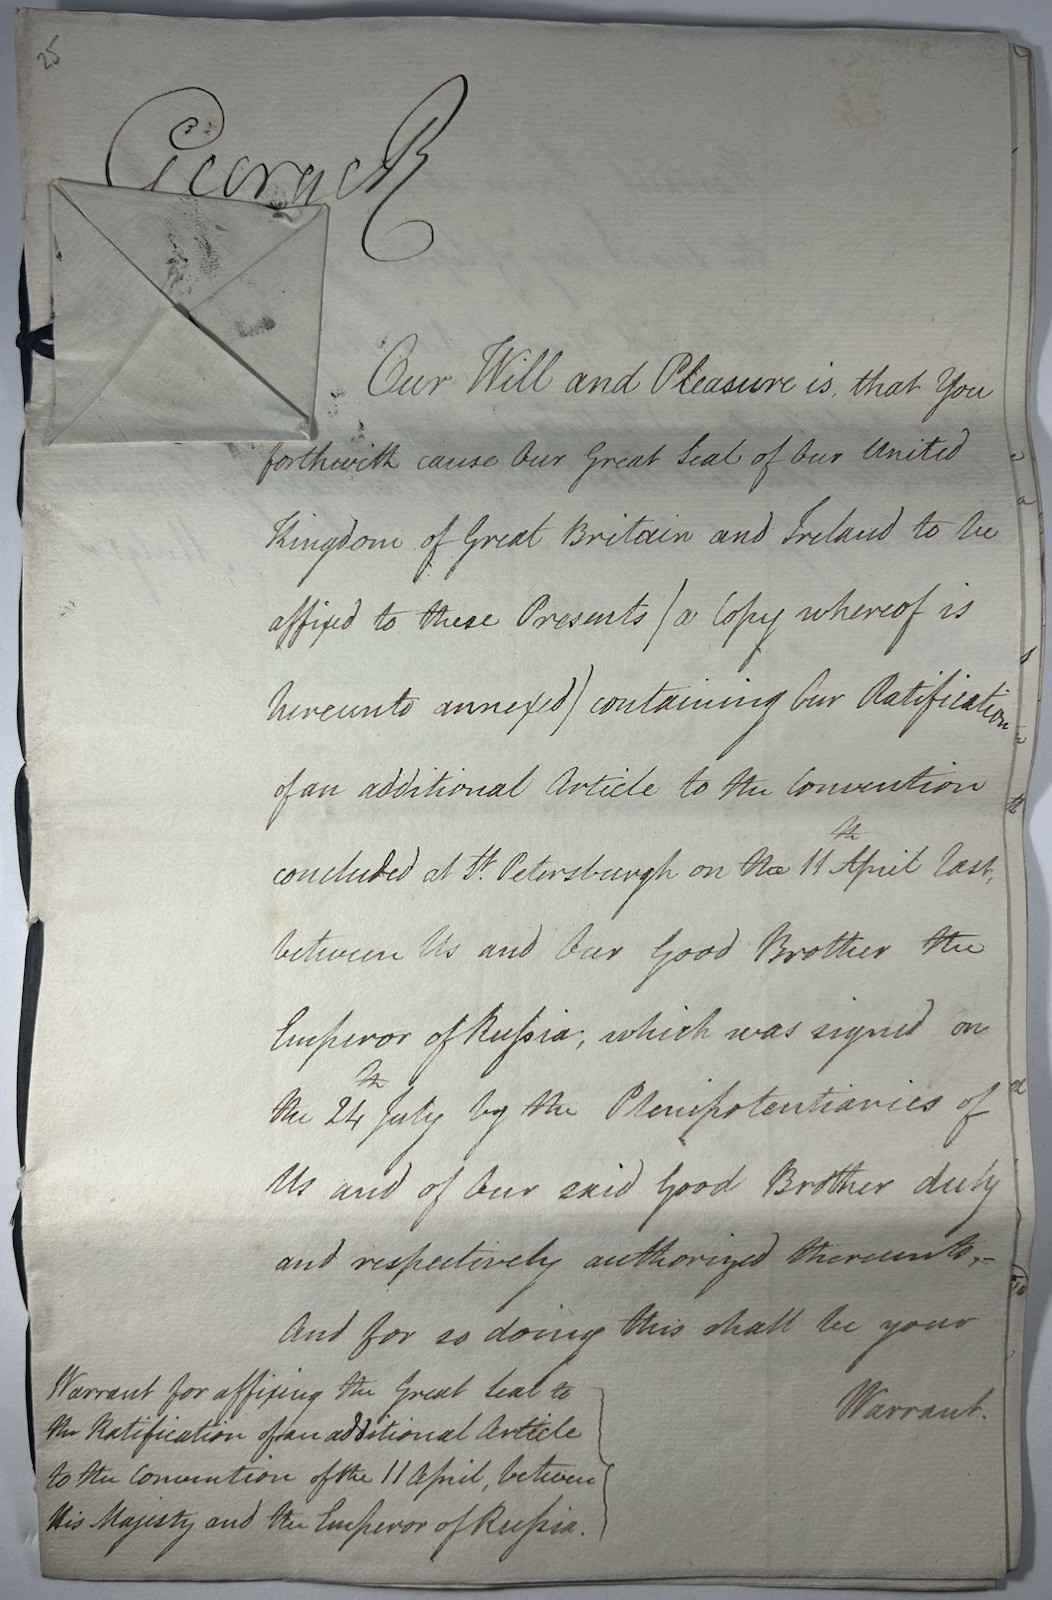 25
George R
Our Will and Pleasure is, that You
forthwith cause Our Great Seal of Our United
Kingdom of Great Britain and Ireland to be
affixed to these Presents (a Copy whereof is
hereunto annexed) containing Our Ratification
of an additional Article to the Convention
concluded at St. Petersburgh on the 11th April last,
between Us and Our Good Brother the
Emperor of Russia, which was signed on
the 24th July by the Plenipotentiaries of
Us and of Our said Good Brother duly
and respectively authorized thereunto,-
And for so doing this shall be your
Warrant.
Warrant for affixing the Great Seal to
the Ratification of an additional Article
to the Convention of the 11 April, between
His Majesty and the Emperor of Russia.